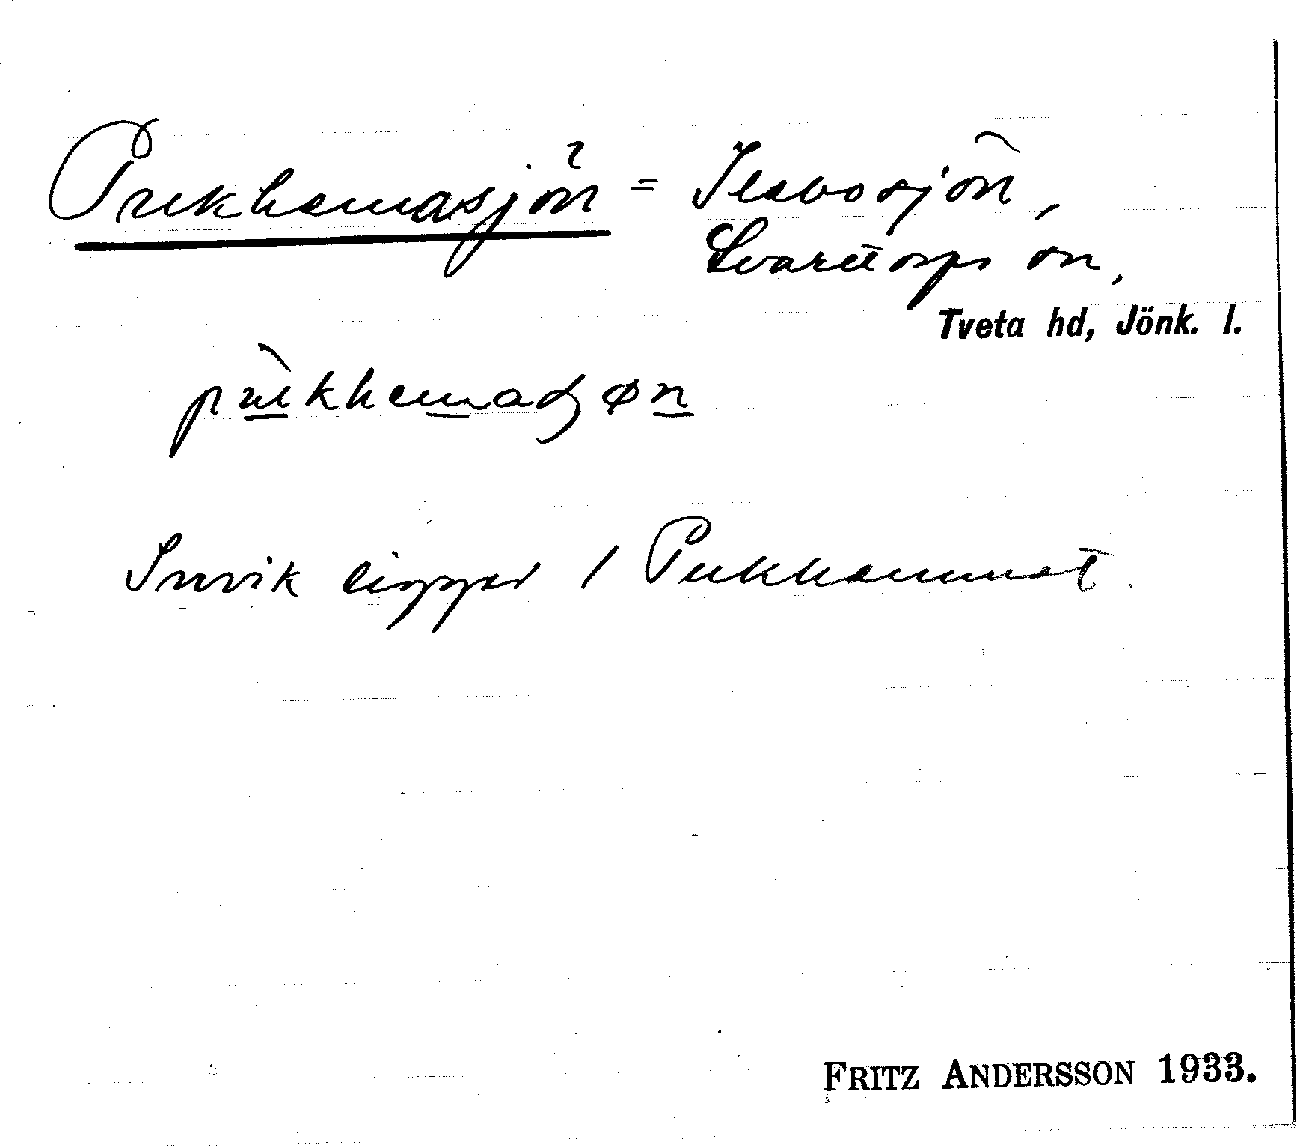 Pukhemasjön = Ilsbosjön,
Svarttorps sn,
Tveta hd, Jönk. l.
pukhemasjøn
Snvik ligger i Pukhemmet.
FRITZ ANDERSSON 1933.